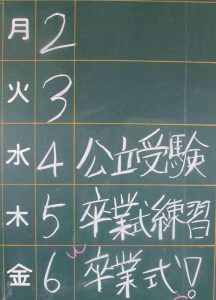 月 2
火 3
水 4 公立受験
木 5 卒業式練習
金 6 卒業式!